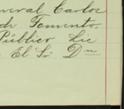 neral Carlos
de Fomento
Público Lic
El Sr Dn